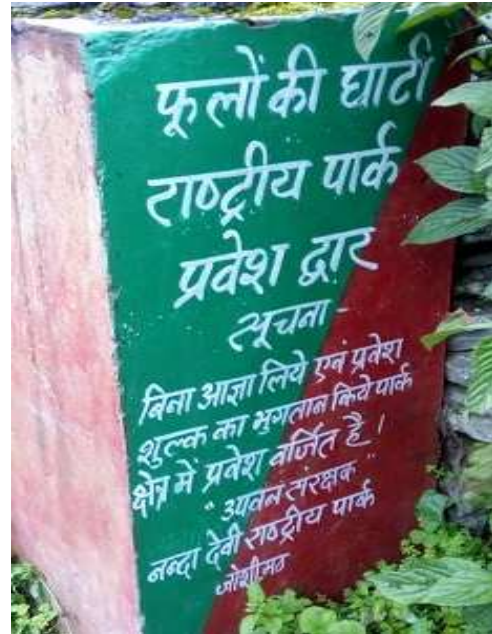 फूलों की घाटी
राष्ट्रीय पार्क
प्रवेश द्वार
सूचना -
बिना आज्ञा लिये एवं प्रवेश
शुल्क का भुगतान किये पार्क
क्षेत्र में प्रवेश वर्जित है ।
"उपवन संरक्षक"
नन्दा देवी राष्ट्रीय पार्क
जोशीमठ